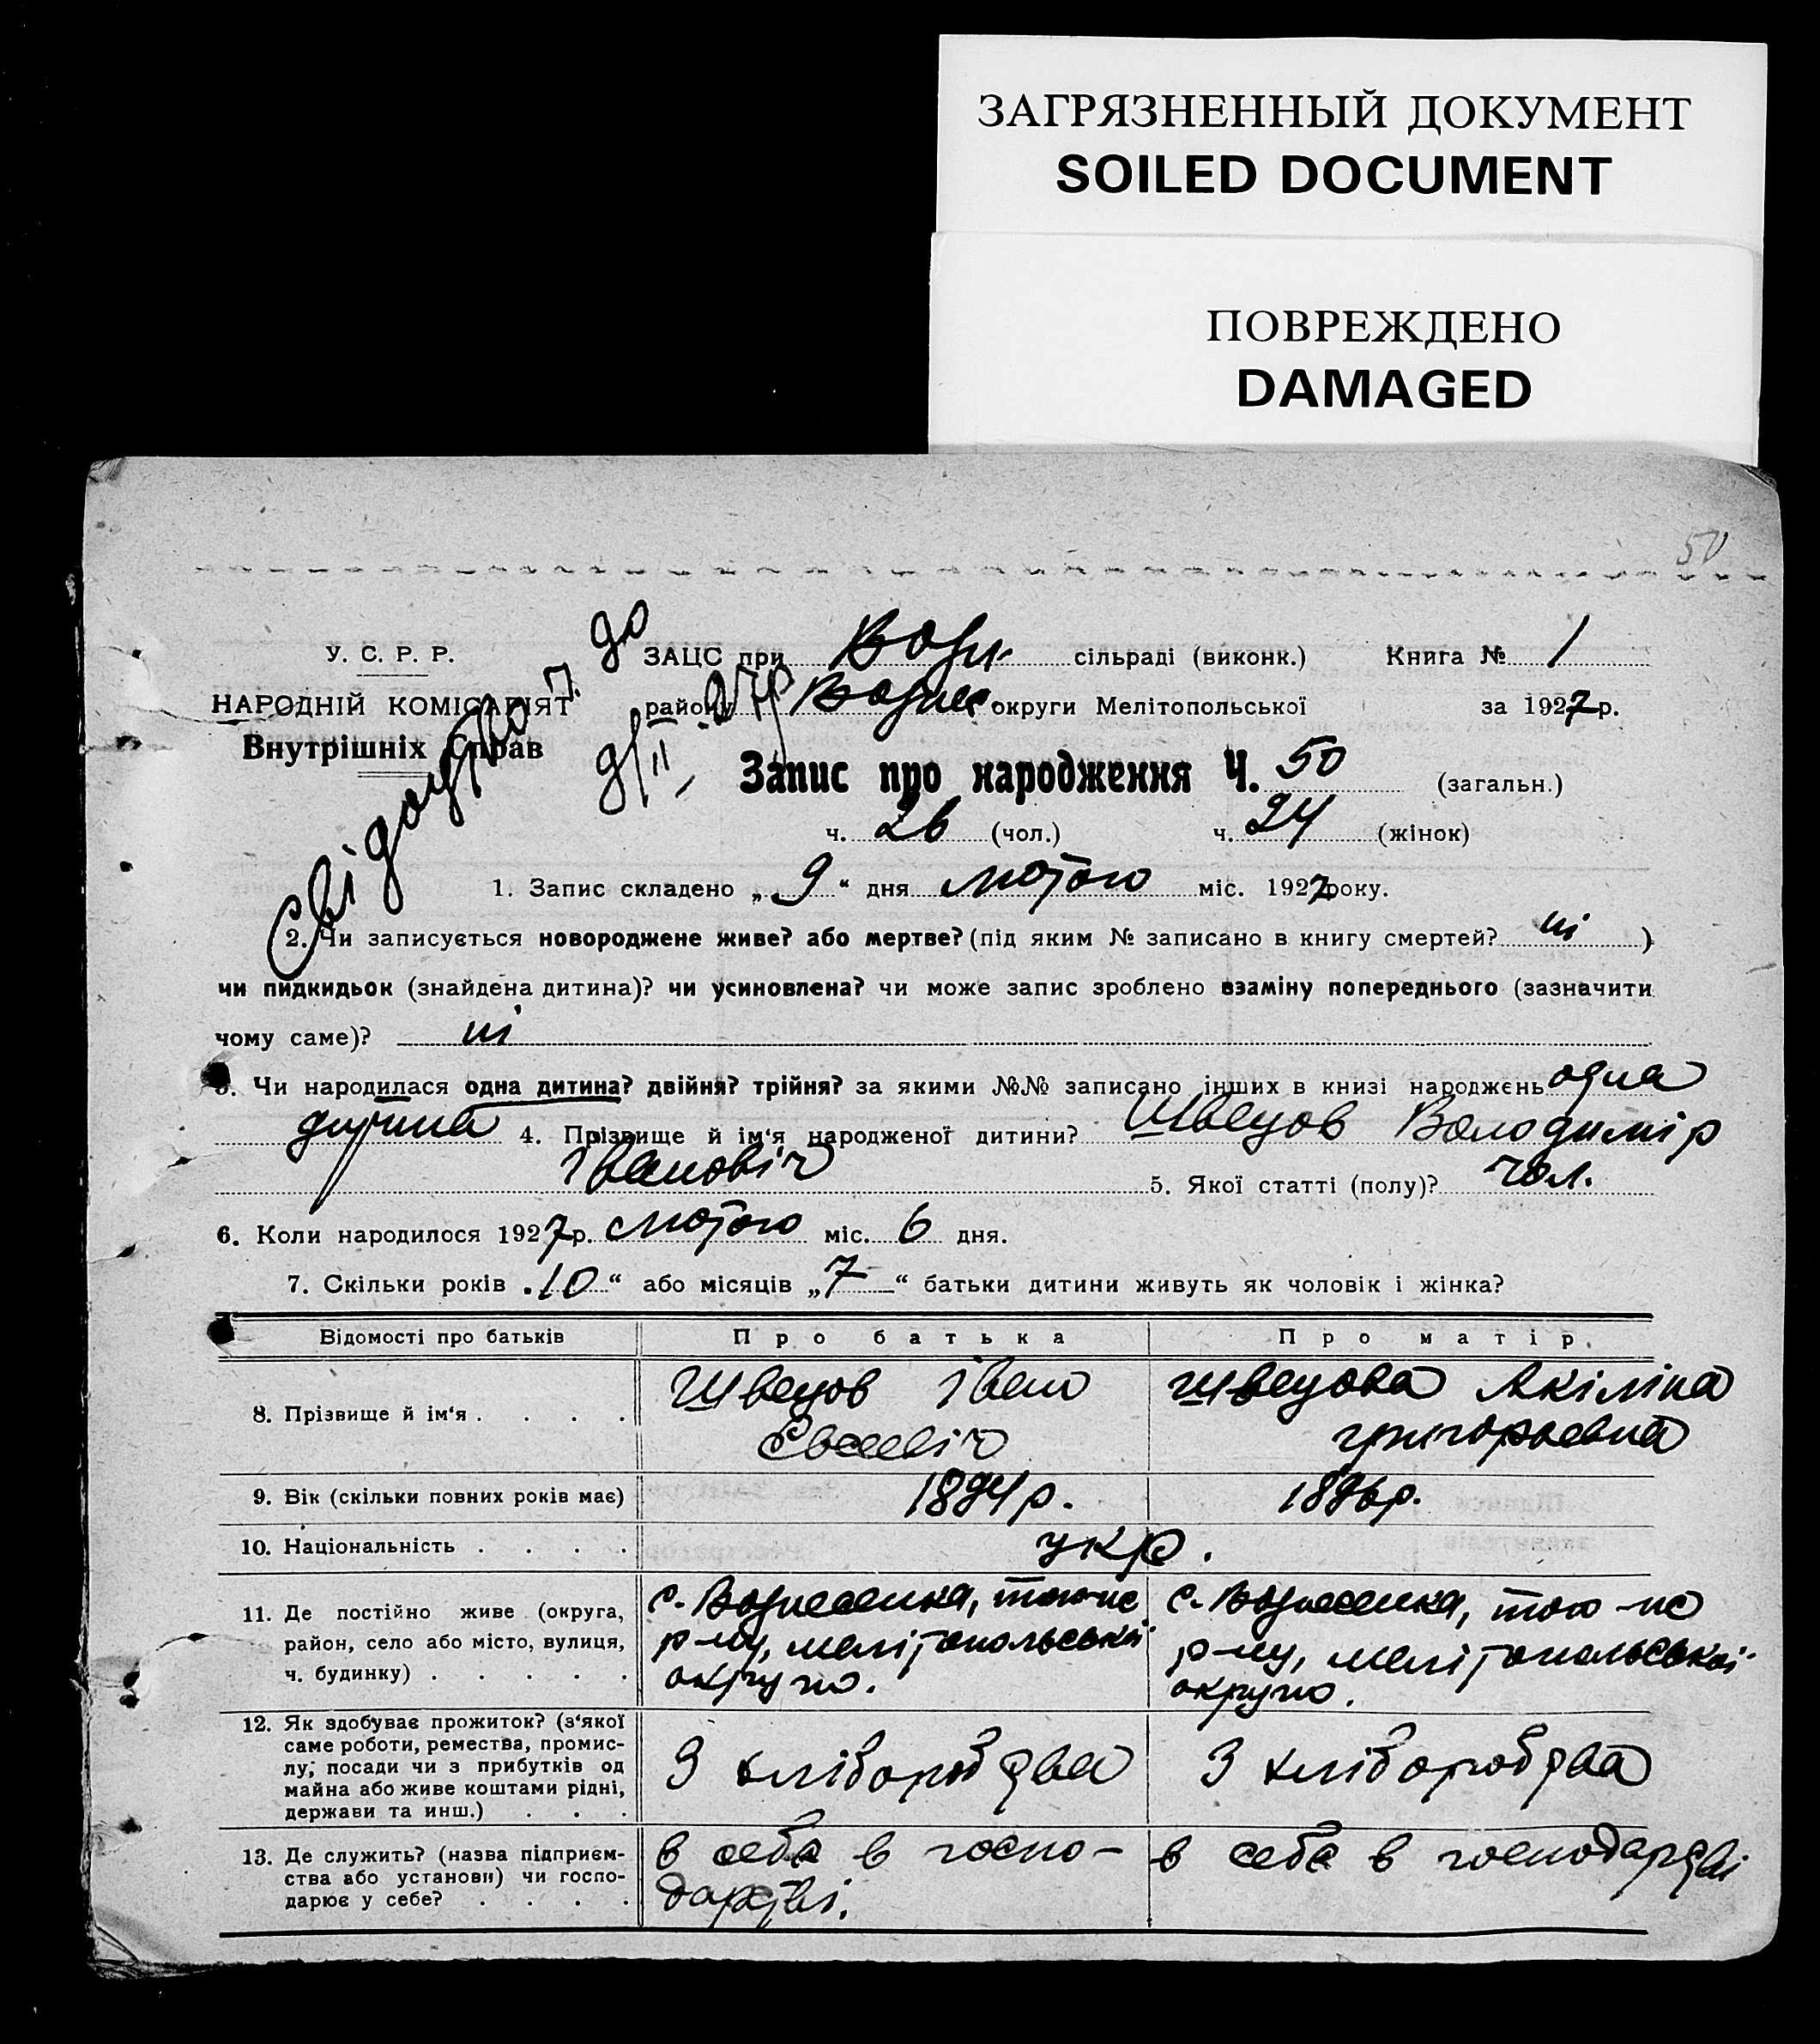 ЗАГРЯЗНЕННЫЙ ДОКУМЕНТ
SOILED DOCUMENT
ПОВРЕЖДЕНО
DAMAGED
50
У. С. Р. Р.
НАРОДНІЙ КОМІСАРІЯТ
Внутрішніх Справ
ЗАЦС при Возн. сільраді (виконк.) Книга № 1
району Вознес округи Мелітопольської за 1927 р.
Запис про народження Ч. 50 (загальн.)
ч. 26 (чол.) ч. 24 (жінок)
1. Запис складено „9“ дня лютого міс. 1927 року.
2. Чи записується новороджене живе? або мертве? (під яким № записано в книгу смертей? ні )
чи пидкидьок (знайдена дитина)? чи усиновлена? чи може запис зроблено взаміну попереднього (зазначити
чому саме)? ні
3. Чи народилася одна дитина? двійня? трійня? за якими №№ записано інших в книзі народжень одна
дитина 4. Прізвище й ім‘я народженої дитини? Швецов Володимір
Івановіч 5. Якої статті (полу)? чол.
6. Коли народилося 1927 р. лютого міс. 6 дня.
7. Скільки років „10“ або місяців „7“ батьки дитини живуть як чоловік і жінка?
Відомості про батьків Про батька Про матір
8. Прізвище й ім‘я . . . . Швецов Іван Швецова Акіліна
Євсевіч Григорьевна
9. Вік (скільки повних років має) 1894 р. 1896 р.
10. Національність . . . . укр.
11. Де постійно живе (округа, район, село або місто, вулиця, ч. будинку) . . . . .
с. Вознесенка, того-ж
р-ну, мелітопольської
округи.
с. Вознесенка, того-ж
р-ну, мелітопольської
округи.
12. Як здобуває прожиток? (з‘якої
саме роботи, ремества, промис-
лу, посади чи з прибутків од
майна або живе коштами рідні,
держави та инш.) . . .
З хліборобства З хліборобства
13. Де служить? (назва підприєм-
ства або установи) чи госпо-
дарює у себе? . . . .
в себе в госпо-
дарстві.
в себе в господарстві